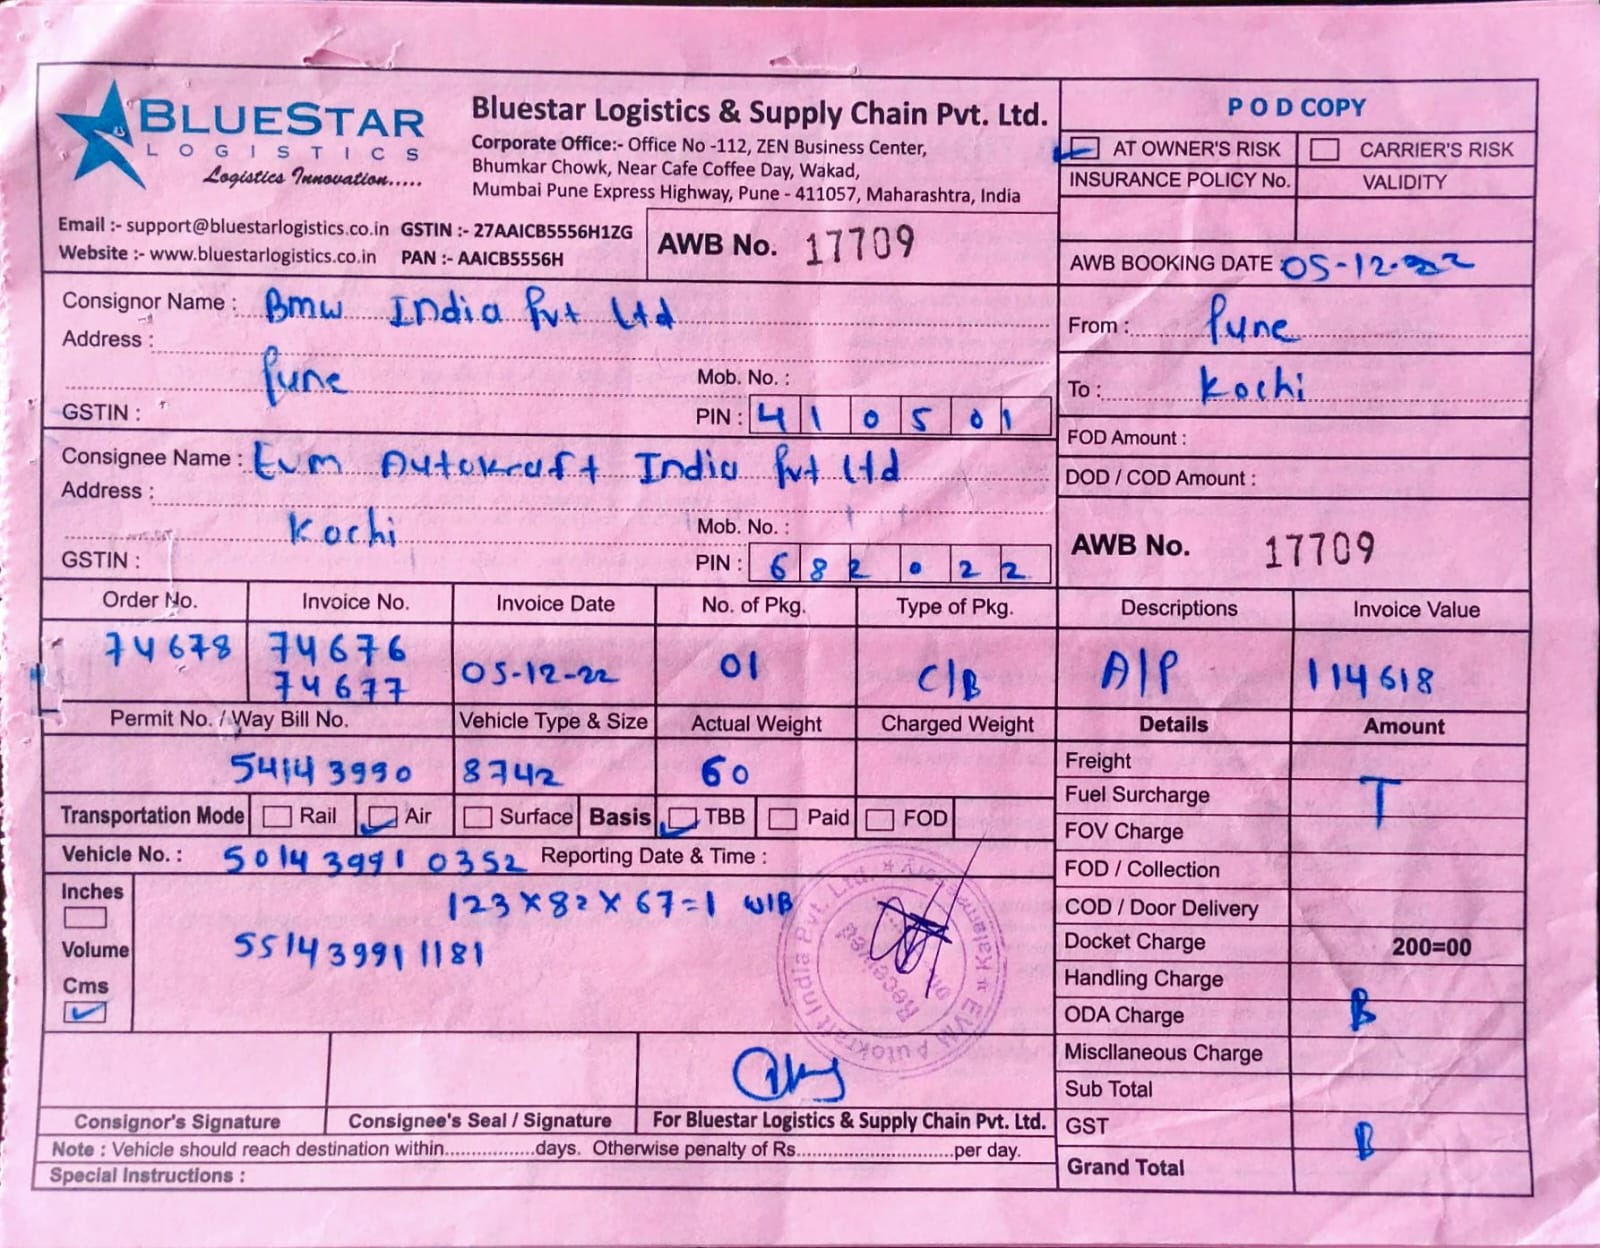 BLUESTAR
LOGISTICS
Logistics Innovation.....
Bluestar Logistics & Supply Chain Pvt. Ltd.
Corporate Office:- Office No -112, ZEN Business Center,
Bhumkar Chowk, Near Cafe Coffee Day, Wakad,
Mumbai Pune Express Highway, Pune - 411057, Maharashtra, India
Email :- support@bluestarlogistics.co.in GSTIN :- 27AAICB5556H1ZG
Website :- www.bluestarlogistics.co.in PAN :- AAICB5556H
AWB No. 17709
POD COPY
AT OWNER'S RISK CARRIER'S RISK
INSURANCE POLICY No. VALIDITY
AWB BOOKING DATE : 05-12-22
Consignor Name : Bmw India Pvt Ltd
Address :
Pune Mob. No. :
GSTIN : PIN : 410501
From : Pune
To : Kochi
Consignee Name : Evm Autokraft India Pvt Ltd
Address :
Kochi Mob. No. :
GSTIN : PIN : 682022
FOD Amount :
DOD / COD Amount :
AWB No. 17709
Order No. Invoice No. Invoice Date No. of Pkg. Type of Pkg. Descriptions Invoice Value
74678 74676 05-12-22 01 C/B A/P 114618
74677
Permit No. / Way Bill No. Vehicle Type & Size Actual Weight Charged Weight Details Amount
54143990 8742 60
Transportation Mode Rail Air Surface Basis TBB Paid FOD
Vehicle No. : 501439910352 Reporting Date & Time :
Inches
Volume
Cms
123 x 82 x 67 = 1 W/B
551439911181
Freight
Fuel Surcharge T
FOV Charge
FOD / Collection
COD / Door Delivery
Docket Charge 200=00
Handling Charge
ODA Charge B
Miscllaneous Charge
Sub Total
GST B
Grand Total
EVM Autokraft India Pvt. Ltd. * Kalamassery *
Received
on
Consignor's Signature Consignee's Seal / Signature For Bluestar Logistics & Supply Chain Pvt. Ltd.
Note : Vehicle should reach destination within.................days. Otherwise penalty of Rs.............................per day.
Special Instructions :